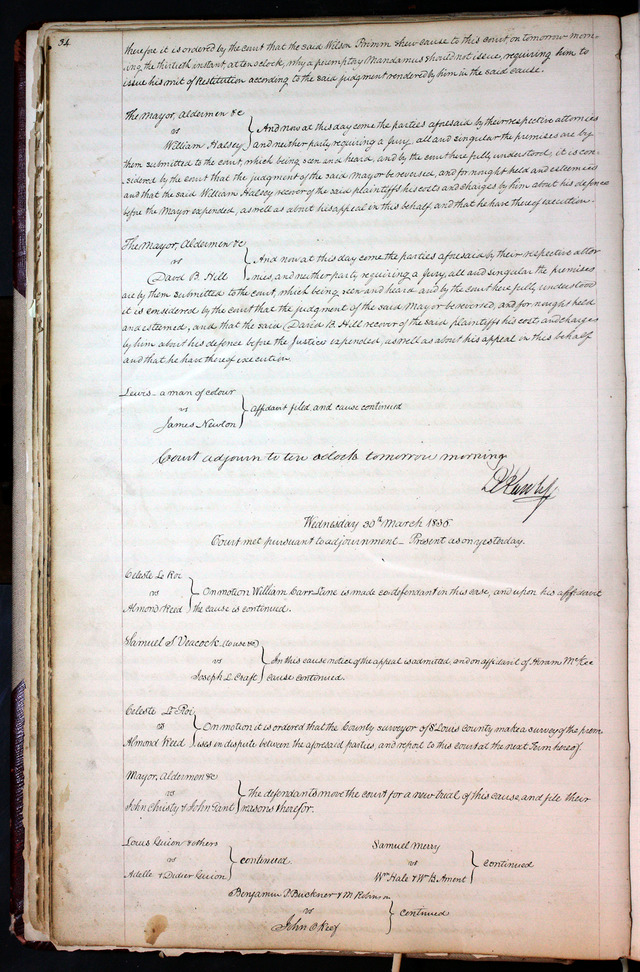 34
therefore it is ordered by the court that the said Wilson Primm shew cause to this court, on tomorrow morn-
ing the thirtieth instant at ten o'clock, why a peremptory Mandamus should not issue, requiring him to
issue his writ of Restitution according to the said judgment rendered by him in the said cause.
The Mayor, Aldermen &c
vs
William Halsey
And now at this day come the parties aforesaid by their respective attornies
and neither party requiring a Jury, all and singular the premises are by
them submitted to the court, which being seen and heard, and by the court here fully understood, it is con-
sidered by the court that the judgment of the said Mayor be reversed, and for nought held and esteemed
and that the said William Halsey recover of the said plaintiffs his costs and charges by him about his defence
before the Mayor expended, as well as about his appeal in this behalf, and that he have thereof execution.
The Mayor, Aldermen &c
vs
David B. Hill
And now at this day come the parties aforesaid by their respective attor
nies, and neither party requiring a Jury, all and singular the premises
are by them submitted to the court, which being seen and heard and by the court here fully understood
it is considered by the court that the judgment of the said Mayor be reversed, and for nought held
and esteemed, and that the said David B. Hill recover of the said plaintiffs his cost and charges
by him about his defence before the Justices expended, as well as about his appeal in this behalf
and that he have thereof execution.
Lewis a man of colour
vs
James Newton
affidavit filed, and cause continued
Court adjourn to ten oclock tomorrow morning
Wednesday 30th March 1836
Court met pursuant to adjournment - Present as on yesterday.
Celeste Le Roi
vs
Almond Reed
On motion William Carr Lane is made co-defendant in this case, and upon his affidavit
the cause is continued.
Samuel S Veacock, to use &c
vs
Joseph L. Craft
In this cause notice of the appeal is admitted, and on affidavit of Hiram McKee
cause continued.
Celeste Le Roi
vs
Almond Reed
On motion it is ordered that the County surveyor of St Louis County make a survey of the prem
ises in dispute between the aforesaid parties, and report to this court at the next Term hereof.
Mayor, Aldermen &c
vs
John Christy & John
the defendants move the court for a new trial of this cause, and file their
reasons therefor.
Louis Guion & others
vs
Adelle & Didier Guion
continued.
Samuel Merry
vs
Wm Hale & Wm B. Ament
continued
Benjamin P Buckner & M Robinson
vs
John O Keef
continued